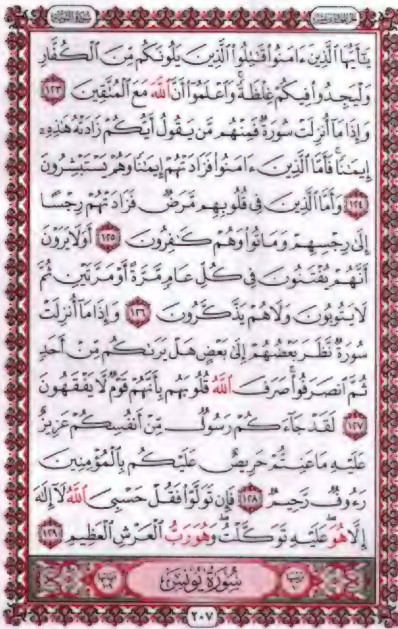 يَٰٓأَيُّهَا ٱلَّذِينَ ءَامَنُوا۟ قَٰتِلُوا۟ ٱلَّذِينَ يَلُونَكُم مِّنَ ٱلْكُفَّارِ
وَلْيَجِدُوا۟ فِيكُمْ غِلْظَةً وَٱعْلَمُوٓا۟ أَنَّ ٱللَّهَ مَعَ ٱلْمُتَّقِينَ ١٢٣
وَإِذَا مَآ أُنزِلَتْ سُورَةٌ فَمِنْهُم مَّن يَقُولُ أَيُّكُمْ زَادَتْهُ هَٰذِهِۦٓ
إِيمَٰنًا فَأَمَّا ٱلَّذِينَ ءَامَنُوا۟ فَزَادَتْهُمْ إِيمَٰنًا وَهُمْ يَسْتَبْشِرُونَ
١٢٤ وَأَمَّا ٱلَّذِينَ فِى قُلُوبِهِم مَّرَضٌ فَزَادَتْهُمْ رِجْسًا
إِلَىٰ رِجْسِهِمْ وَمَاتُوا۟ وَهُمْ كَٰفِرُونَ ١٢٥ أَوَلَا يَرَوْنَ
أَنَّهُمْ يُفْتَنُونَ فِى كُلِّ عَامٍ مَّرَّةً أَوْ مَرَّتَيْنِ ثُمَّ
لَا يَتُوبُونَ وَلَا هُمْ يَذَّكَّرُونَ ١٢٦ وَإِذَا مَآ أُنزِلَتْ
سُورَةٌ نَّظَرَ بَعْضُهُمْ إِلَىٰ بَعْضٍ هَلْ يَرَىٰكُم مِّنْ أَحَدٍ
ثُمَّ ٱنصَرَفُوا۟ صَرَفَ ٱللَّهُ قُلُوبَهُم بِأَنَّهُمْ قَوْمٌ لَّا يَفْقَهُونَ
١٢٧ لَقَدْ جَآءَكُمْ رَسُولٌ مِّنْ أَنفُسِكُمْ عَزِيزٌ
عَلَيْهِ مَا عَنِتُّمْ حَرِيصٌ عَلَيْكُم بِٱلْمُؤْمِنِينَ
رَءُوفٌ رَّحِيمٌ ١٢٨ فَإِن تَوَلَّوْا۟ فَقُلْ حَسْبِىَ ٱللَّهُ لَآ إِلَٰهَ
إِلَّا هُوَ عَلَيْهِ تَوَكَّلْتُ وَهُوَ رَبُّ ٱلْعَرْشِ ٱلْعَظِيمِ ١٢٩
سُورَةُ يُونُسَ
٢٠٧